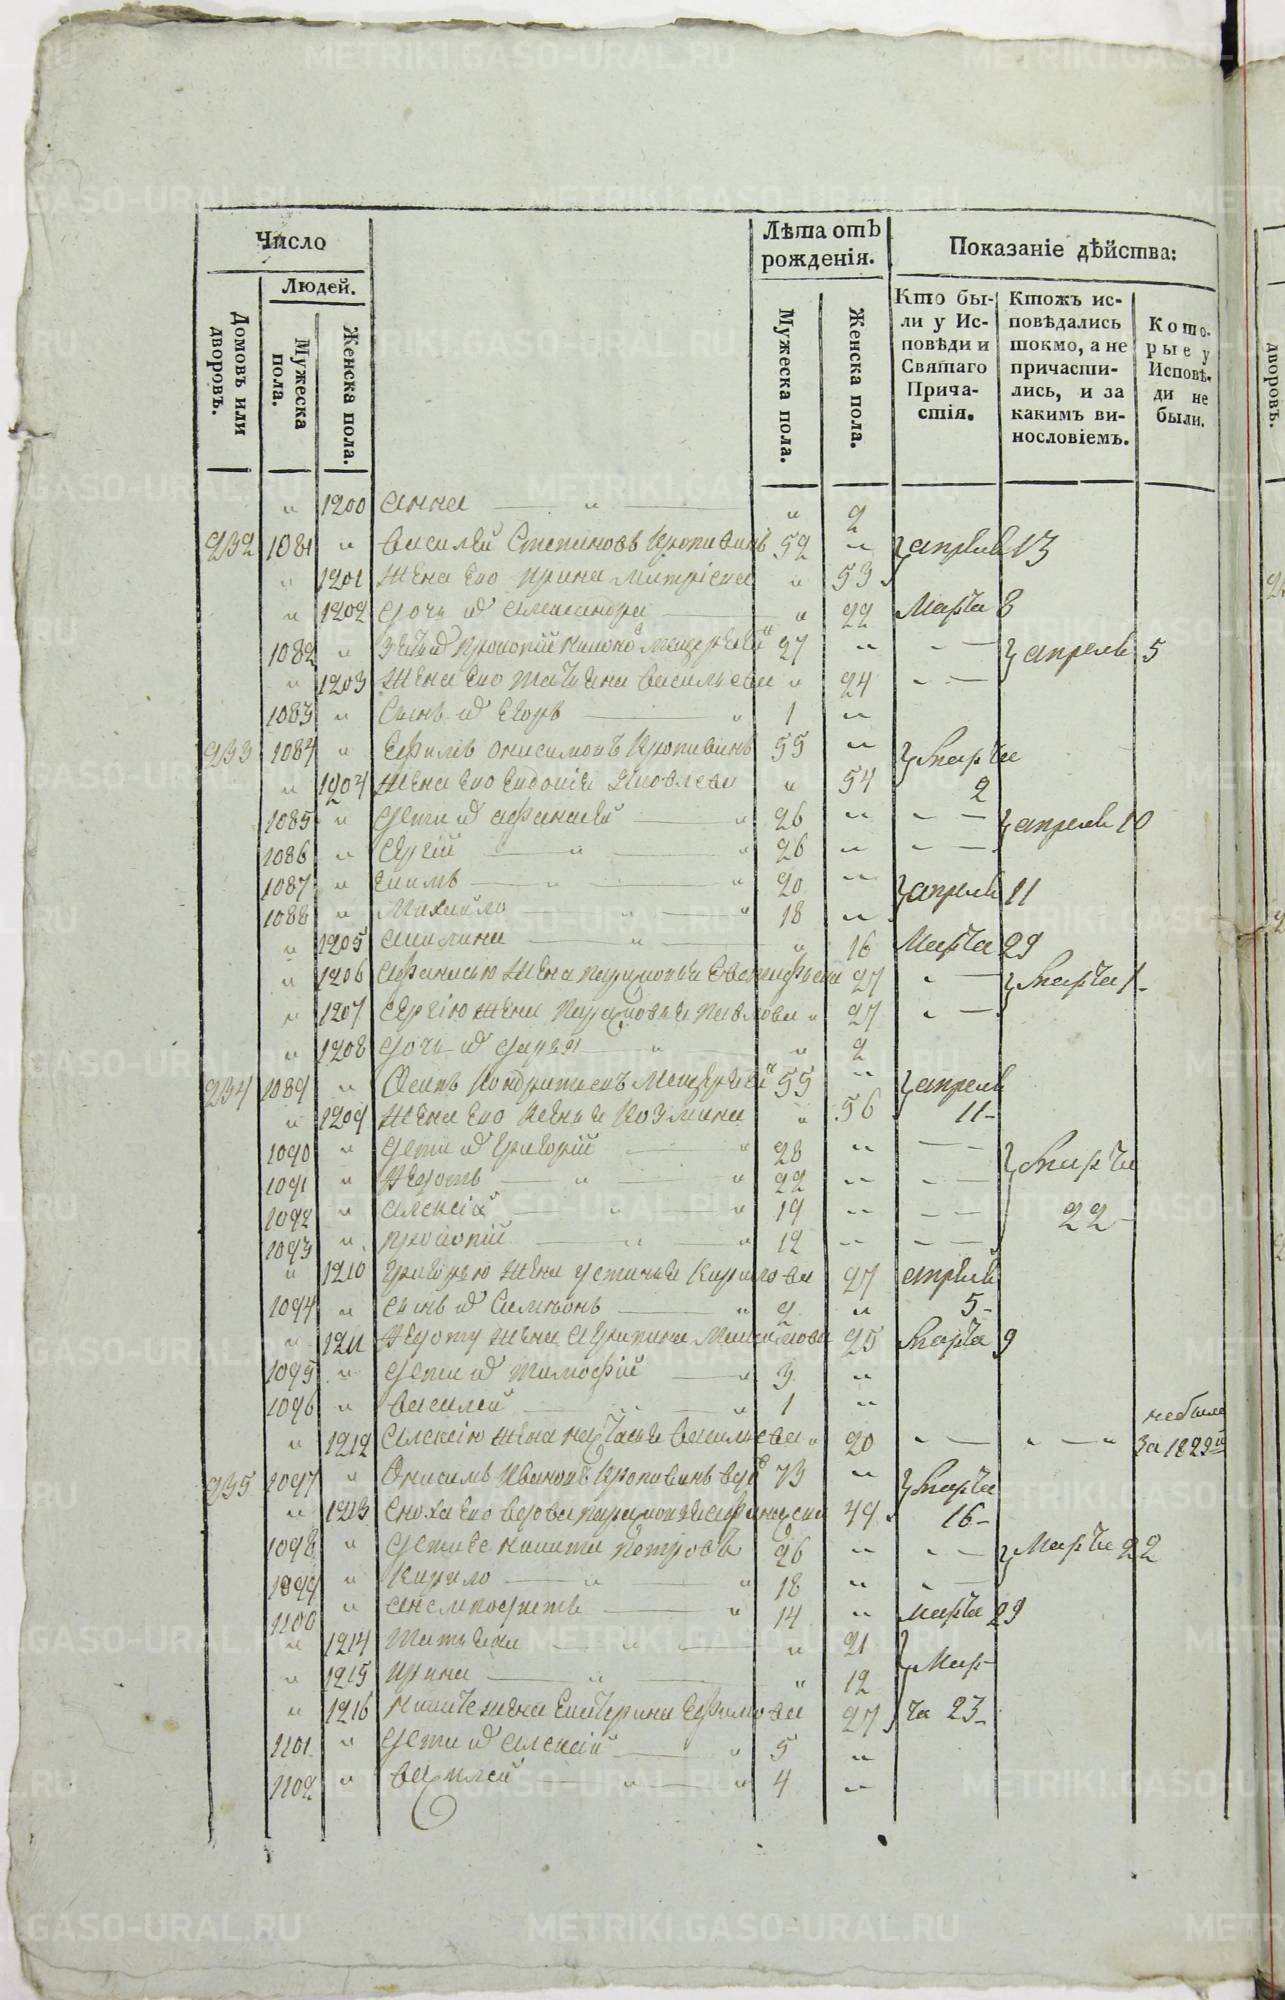 Число
Людей.
Домовъ или дворовъ.
Мужеска пола.
Женска пола.
Лѣта отъ рожденія.
Мужеска пола.
Женска пола.
Показаніе дѣйства:
Кто были у Исповѣди и Святаго Причастія.
Ктожъ исповѣдались токмо, а не причастились, и за какимъ винословіемъ.
Которые у Исповѣди не были.
" 1200 Анна — " — " 2
232 1081 " Василей Степановъ Кропивинъ 52 " } апреля 13
" 1201 Жена его Ирина Митріева " 53
" 1202 Дочь их Александра — " 22 Марта 8
1082 " 27 " " — } апреля 5
" 1203 Жена его Татьяна Васильева " 24 " —
1083 " Сынъ их Егоръ — " 1 "
233 1084 " Ефимъ Онисимовъ Кропивинъ 55 " } Марта
" 1204 Жена его Евдокія Яковлева " 54 2
1085 " Дети их Афанасей — " 26 " " — } апреля 10
1086 " Сергій — " — " 26 " " —
1087 " Екимъ — " — " 20 " } апреля 11
1088 " Михайло — " — " 18 "
" 1205 Акилина — " — " 16 Марта 29
" 1206 Афанасью жена 27 " — } Марта 1
" 1207 Сергію жена Павлова " 27 " —
" 1208 Дочь их Дарья — " — " 2
234 1089 " Осипъ Кондратьевъ 55 " } апреля
" 1209 Жена его Ксенья Козмина " 56 11
1090 " Дети их Григорій — " 28 " — } Марта
1091 " Федотъ — " — " 22 " " —
1092 " Алексій — " — " 19 " " — 22
1093 " Прокопій — " — " 12 " " —
" 1210 Григорью жена Устинья Кирилова 27 апреля
1094 " Сынъ их Симеонъ — " 2 " 5
" 1211 Федоту жена Агрипина Максимова 25 Марта 9
1095 " Дети их Тимофій — " 3 "
1096 " Василей — " — " 1 "
" 1212 Алексію жена Настасья Васильева " 20 " — " — " небыла
за 1829й
235 1097 " Онисимъ Ивановъ Кропивинъ 73 " } Марта
" 1213 Сноха его вдова 49 16
1098 " Дети ее Никита Петровъ 26 " " — } Марта 22
1099 " Кирило — " — " 18 " " —
1100 " — " 14 " Марта 29
" 1214 Татьяна — " — " 21 } Мар-
" 1215 Ирина — " — " 12
" 1216 Никите жена Екатерина Ефимова 27 та 23
1101 " Дети их Алексій — " 5 "
1102 " Василей — " — " 4 "